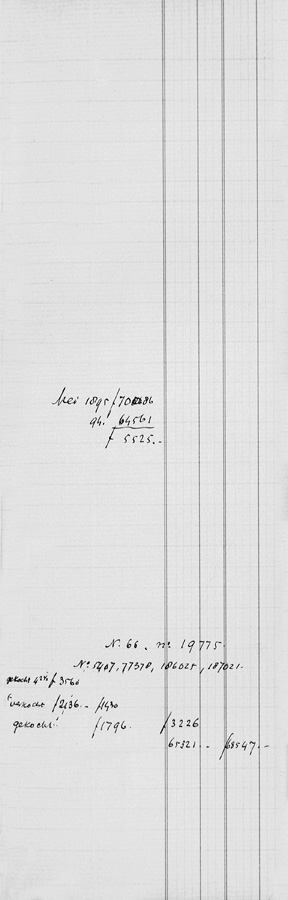 Mei 1895 f 70086
94. 64561
f 5525.-
N. 66. n. 19775.
No. 5407, 77378, 186025, 187021.
gekocht f 3566
verkocht f 2136.- f 1430
gekocht f 1796. f 3226
65321.- f 68547.-